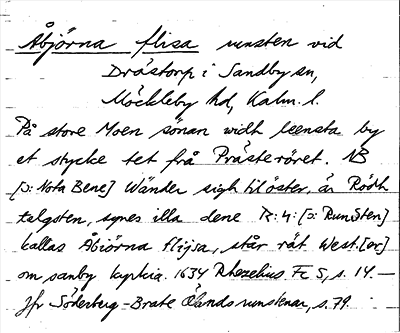 Åbjörna flisa runsten vid
Dröstorp i Sandby sn,
Möckleby hd, Kalm. l.
På store Moen sönan widh leensta by
et stycke tet frå Prästeröret. NB
[ɔ: Nota Bene] Wänder sigh til öster, är Rödh
talgsten, synes illa dene R:4: [ɔ: RunSten]
kallas Åbiörna flijsa, står rät West.[er]
om sanby kyrkia. 1634 Rhezelius Fc 5, s. 14. —
Jfr Söderberg-Brate Ölands runstenar, s. 79.